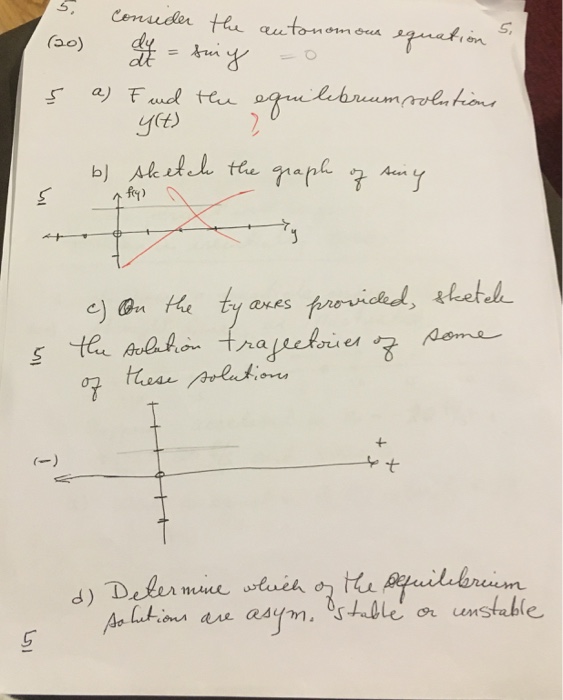 5. Consider the autonomous equation 5.
(20) dy/dt = sin y = 0
5 a) Find the equilibrium solutions
y(t) ?
b) Sketch the graph of sin y
5 f(y)
y
c) On the ty axes provided, sketch
5 the solution trajectories of some
of these solutions
+
(-) t
d) Determine which of the equilibrium
solutions are asym. stable or unstable
5